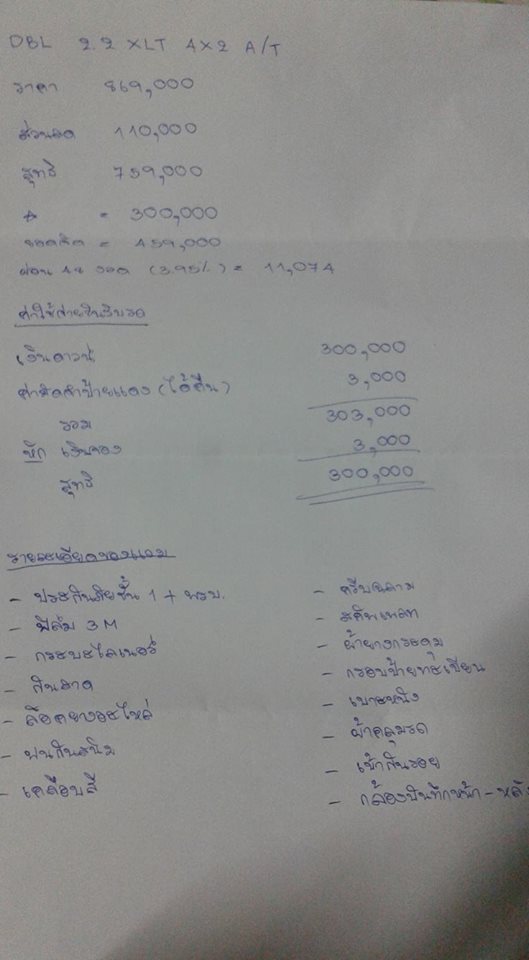 DBL 2.2 XLT 4X2 A/T
ราคา 869,000
ส่วนลด 110,000
สุทธิ 759,000
= 300,000
ยอดจัด = 459,000
ผ่อน 48 งวด (3.95%) = 11,074
ค่าใช้จ่ายวันรับรถ
เงินดาวน์ 300,000
ค่ามัดจำป้ายแดง (ได้คืน) 3,000
รวม 303,000
หัก เงินจอง 3,000
สุทธิ 300,000
รายละเอียดของแถม
- ประกันภัยชั้น 1 + พรบ.
- ฟิล์ม 3M
- กระบะไลเนอร์
- กันสาด
- ล็อคยางอะไหล่
- พ่นกันสนิม
- เคลือบสี
- ครีบฉลาม
- สคัพเพลท
- ผ้ายางกระดุม
- กรอบป้ายทะเบียน
- เบาะหนัง
- ผ้าคลุมรถ
- เบ้ากันรอย
- กล้องบันทึกหน้า - หลัง